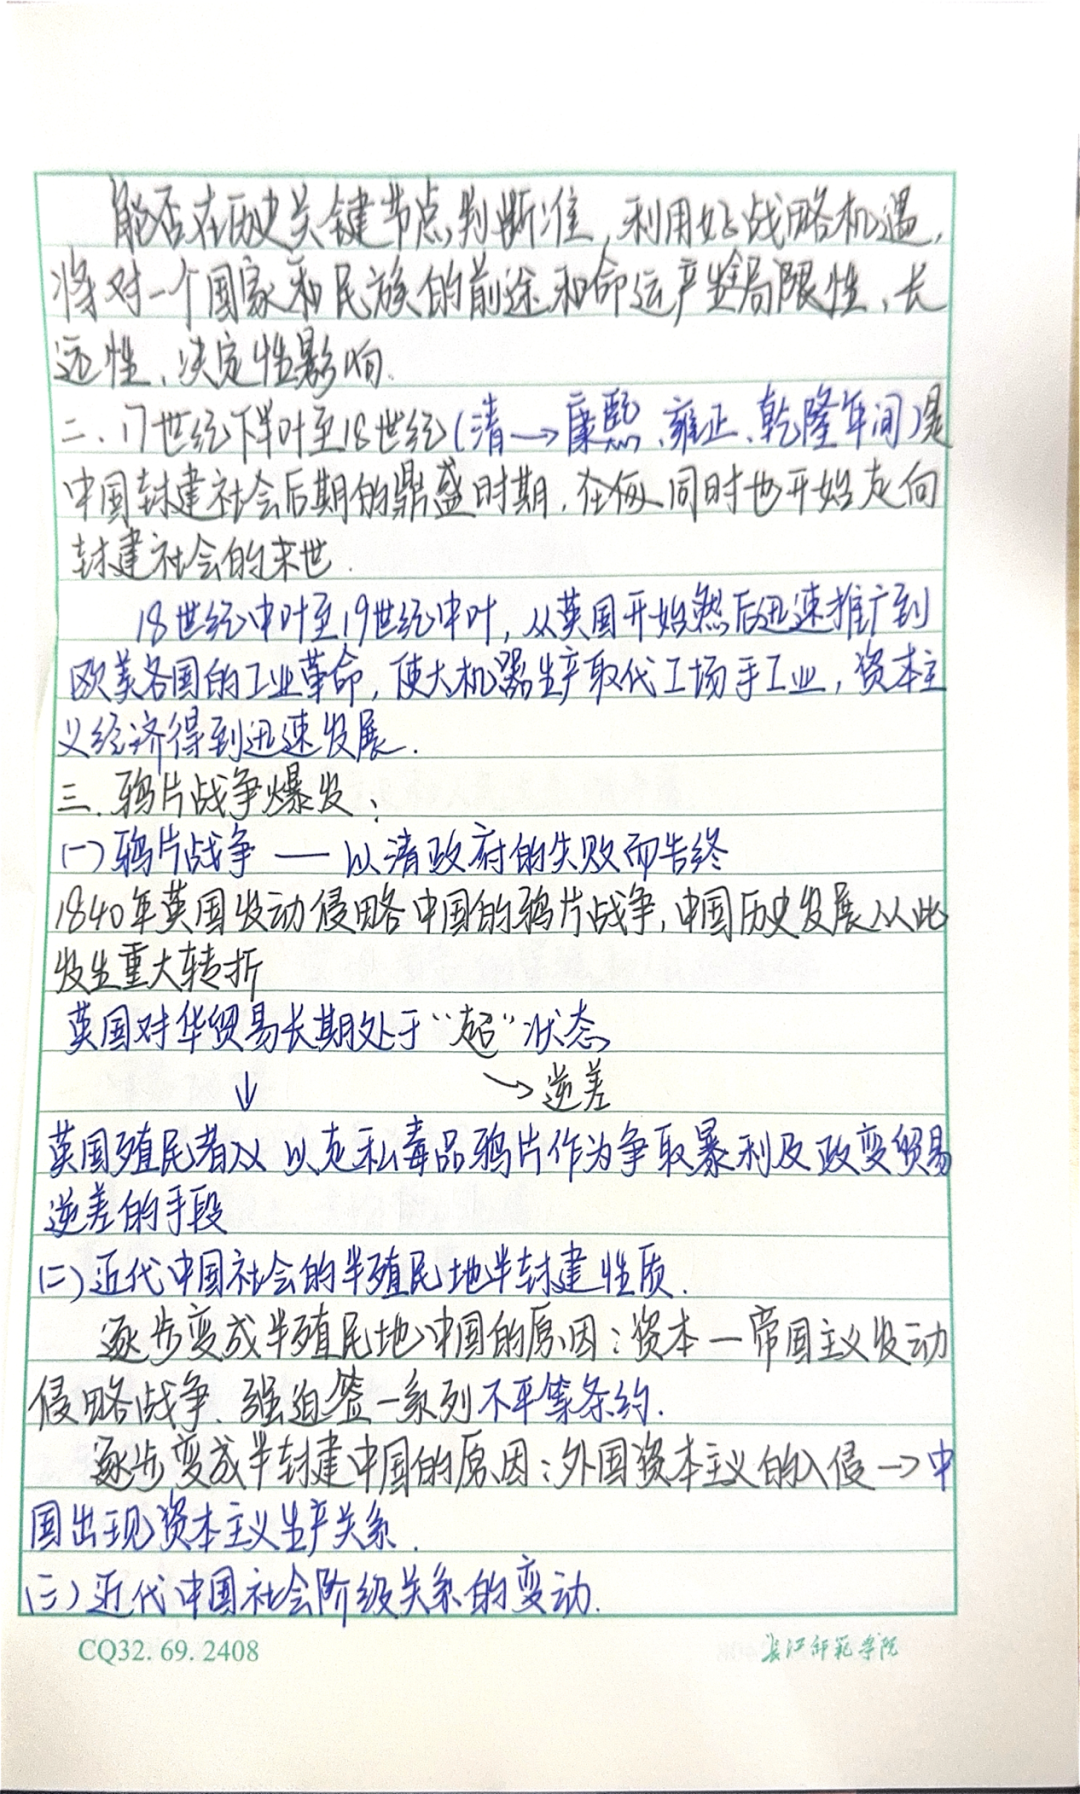 能否在历史关键节点判断准,利用好战略机遇,
将对一个国家和民族的前途和命运产生局限性、长
远性、决定性影响.
二、17世纪下半叶至18世纪(清→康熙、雍正、乾隆年间)是
中国封建社会后期的鼎盛时期,在 同时也开始走向
封建社会的末世.
18世纪中叶至19世纪中叶,从英国开始然后迅速推广到
欧美各国的工业革命,使大机器生产取代工场手工业,资本主
义经济得到迅速发展.
三、鸦片战争爆发:
(一)鸦片战争 — 以清政府的失败而告终
1840年英国发动侵略中国的鸦片战争,中国历史发展从此
发生重大转折
英国对华贸易长期处于“超”状态
↓ →逆差
英国殖民者 以走私毒品鸦片作为争取暴利及改变贸易
逆差的手段
(二)近代中国社会的半殖民地半封建性质.
逐步变成半殖民地中国的原因:资本—帝国主义发动
侵略战争、强迫签一系列不平等条约.
逐步变成半封建中国的原因:外国资本主义的入侵→中
国出现资本主义生产关系.
(三)近代中国社会阶级关系的变动.
CQ32.69.2408 长江师范学院